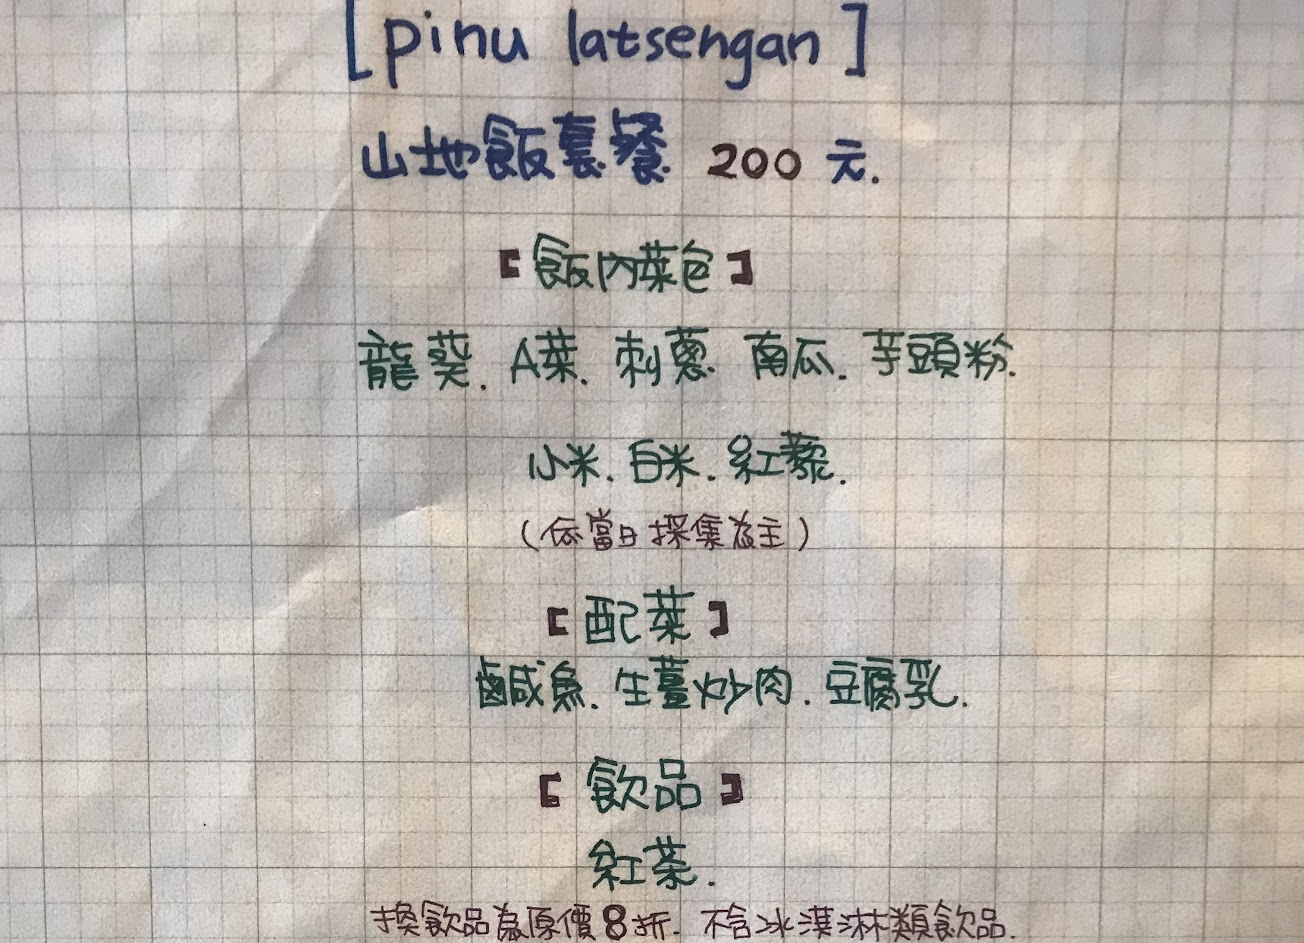 [pinu latsengan]
山地飯套餐 200 元.
【飯內菜包】
龍葵. A菜. 刺蔥 南瓜. 芋頭粉.
小米. 白米. 紅藜.
(依當日採集為主)
【配菜】
鹹魚. 生薑炒肉. 豆腐乳.
【飲品】
紅茶.
換飲品為原價8折. 不含冰淇淋類飲品.